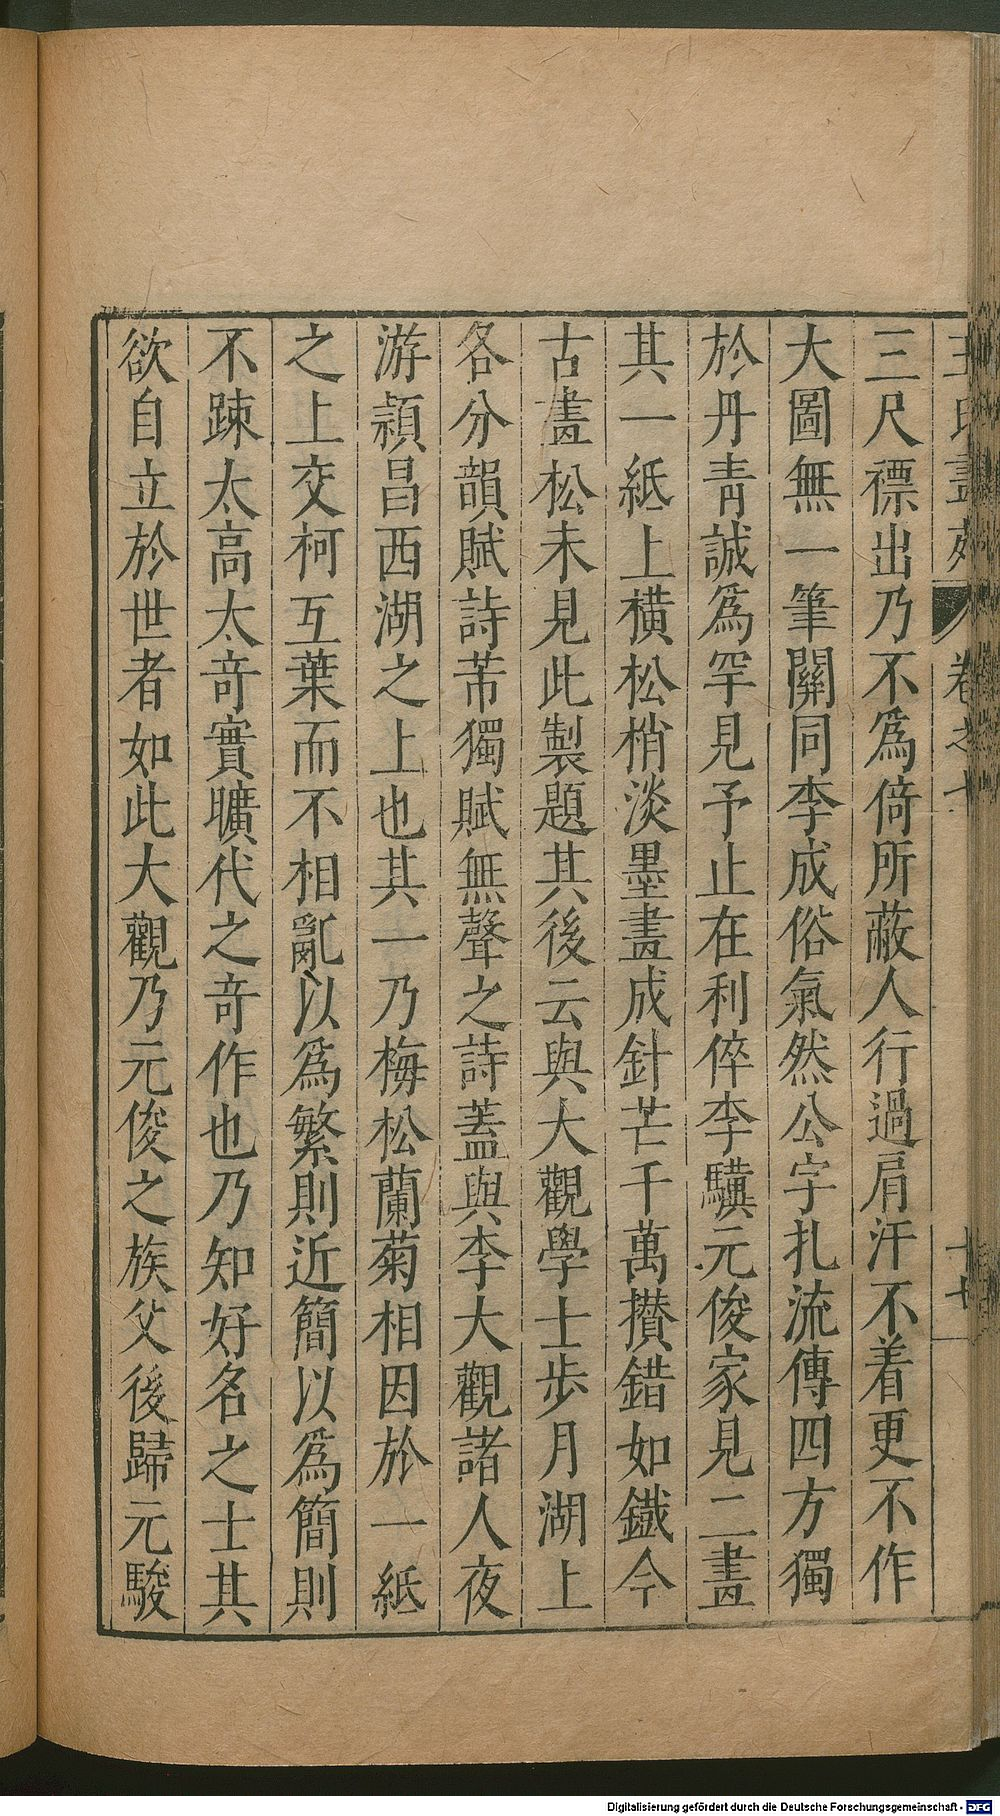 三尺褾出乃不爲倚所蔽人行過肩汗不着更不作
大圖無一筆關同李成俗氣然公字扎流傳四方獨
於丹青誠爲罕見予止在利倅李驥元俊家見二畫
其一紙上橫松梢淡墨畫成針芒千萬攅錯如鐵今
古畫松未見此製題其後云與大觀學士步月湖上
各分韻賦詩芾獨賦無聲之詩蓋與李大觀諸人夜
游潁昌西湖之上也其一乃梅松蘭菊相因於一紙
之上交柯互葉而不相亂以爲繁則近簡以爲簡則
不踈太高太竒實曠代之竒作也乃知好名之士其
欲自立於世者如此大觀乃元俊之族父後歸元駿
王氏畫苑 卷之 十七
Digitalisierung gefördert durch die Deutsche Forschungsgemeinschaft - DFG